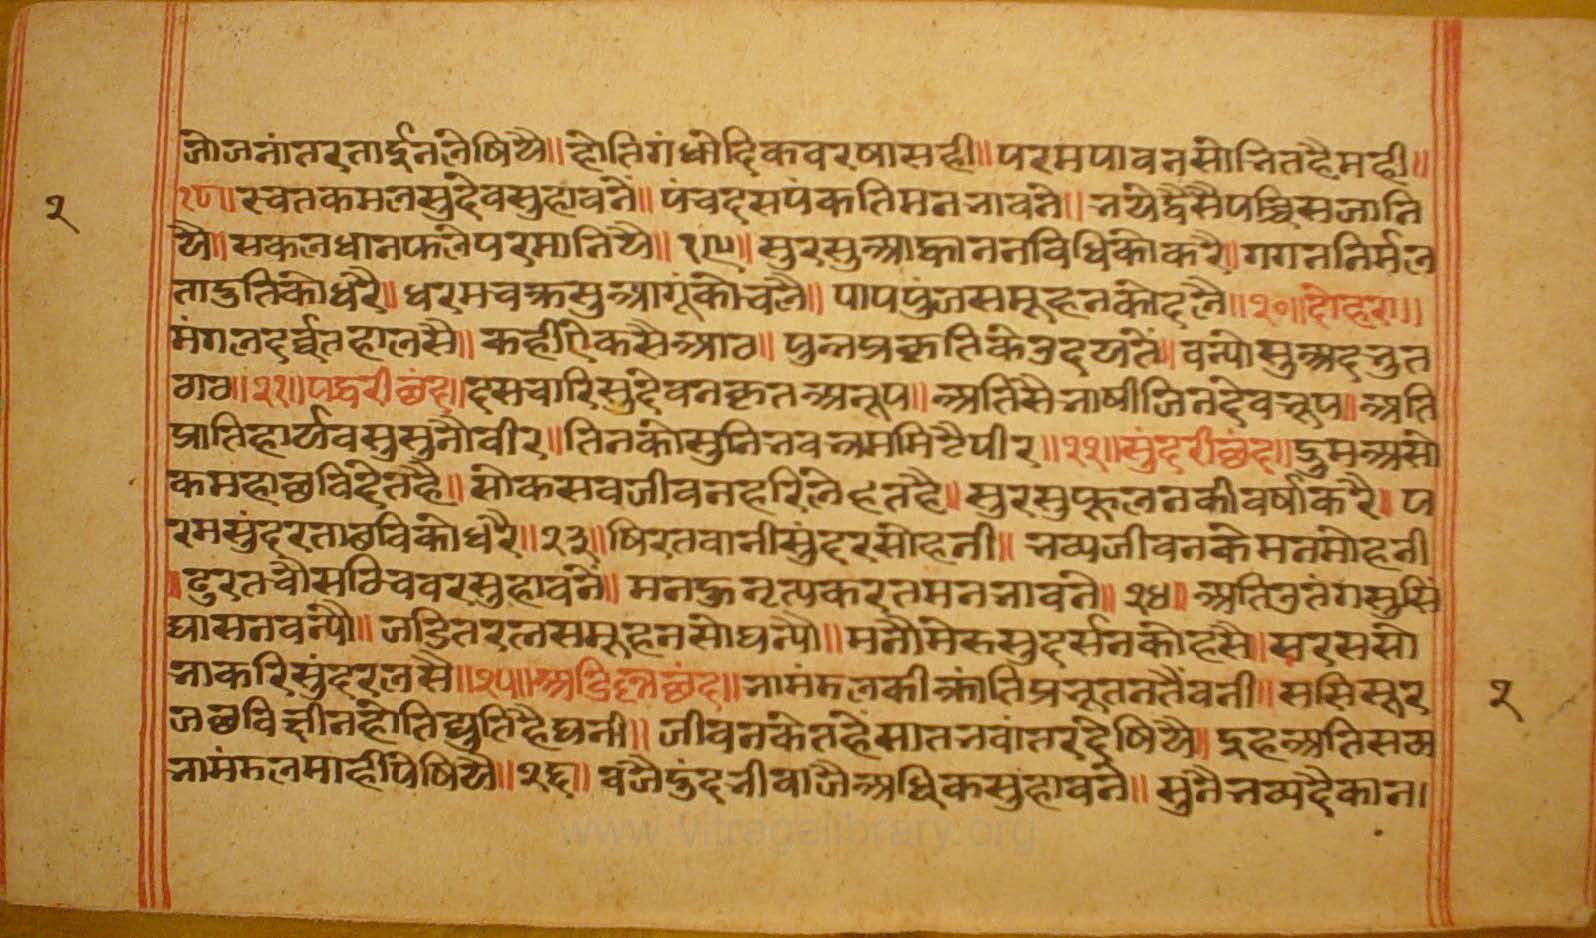 जोजनांतरतार्इनलेषियै॥ होतिगंधोदिकवरषासही॥ परमपावनसोभितहैमही॥
१८॥ स्वतकमलसुदेवसुहावनें॥ पंचदसपंकतिमनभावने॥ भयेद्वैसैपच्चिसजानि
यै॥ सकलधानफलेपरमानियै॥ १९॥ सुरसुआह्वाननविधिकोकरै॥ गगननिर्मल
ताद्रुतिकोधरै॥ धरमचक्रसुआगूंकोचलै॥ पापपुंजसमूहनकोदलै॥ २०॥ दोहरा॥
मंगलदर्व्वतहालसै॥ कहींऐकसैआठ॥ पुन्नप्रकृतिकेउदयतें॥ वन्योसुअदभुत
ठाठ॥ २१॥ पद्धरीछंद॥ दसचारिसुदेवनकृतअनूप॥ अतिसैभाषीजिनदेवभूप॥ अति
प्रातिहार्यवसुसुनौवीर॥ तिनकोसुनिभवभ्रममिटैपीर॥ २२॥ सुंदरीछंद॥ द्रुमअसो
कमहाछविदेतहै॥ सोकसवजीवनहरिलेहतहै॥ सुरसुफूलनकीवर्षाकरै॥ प
रमसुंदरताछविकोधरै॥ २३॥ षिरतवानीसुंदरसोहनी॥ भव्यजीवनकेमनमोहनी
॥ ढुरतचौसठिचवरसुहावनै॥ मनहुनृत्यकरतमनभावने॥ २४॥ अतिउतंगसुसिं
घासनवन्यौ॥ जडितरत्नसमूहनसोघन्यौ॥ मनौमेरुसुदर्सनकोहसै॥ सरससो
भाकरिसुंदरलसै॥ २५॥ अडिल्लछंद॥ भामंडलकीक्रांतिप्रभूतनतैंवनी॥ ससिसूर
जछविछीनहोतिद्युतिहैघनी॥ जीवनकेतहैसातभवांतरदेषियै॥ इहअतिसय
भामंडलमाहींपेषियै॥ २६॥ वजैदुंदभीवाजैअधिकसुहावने॥ सुनैभव्यदैकान।
२
२
www.vitragelibrary.org